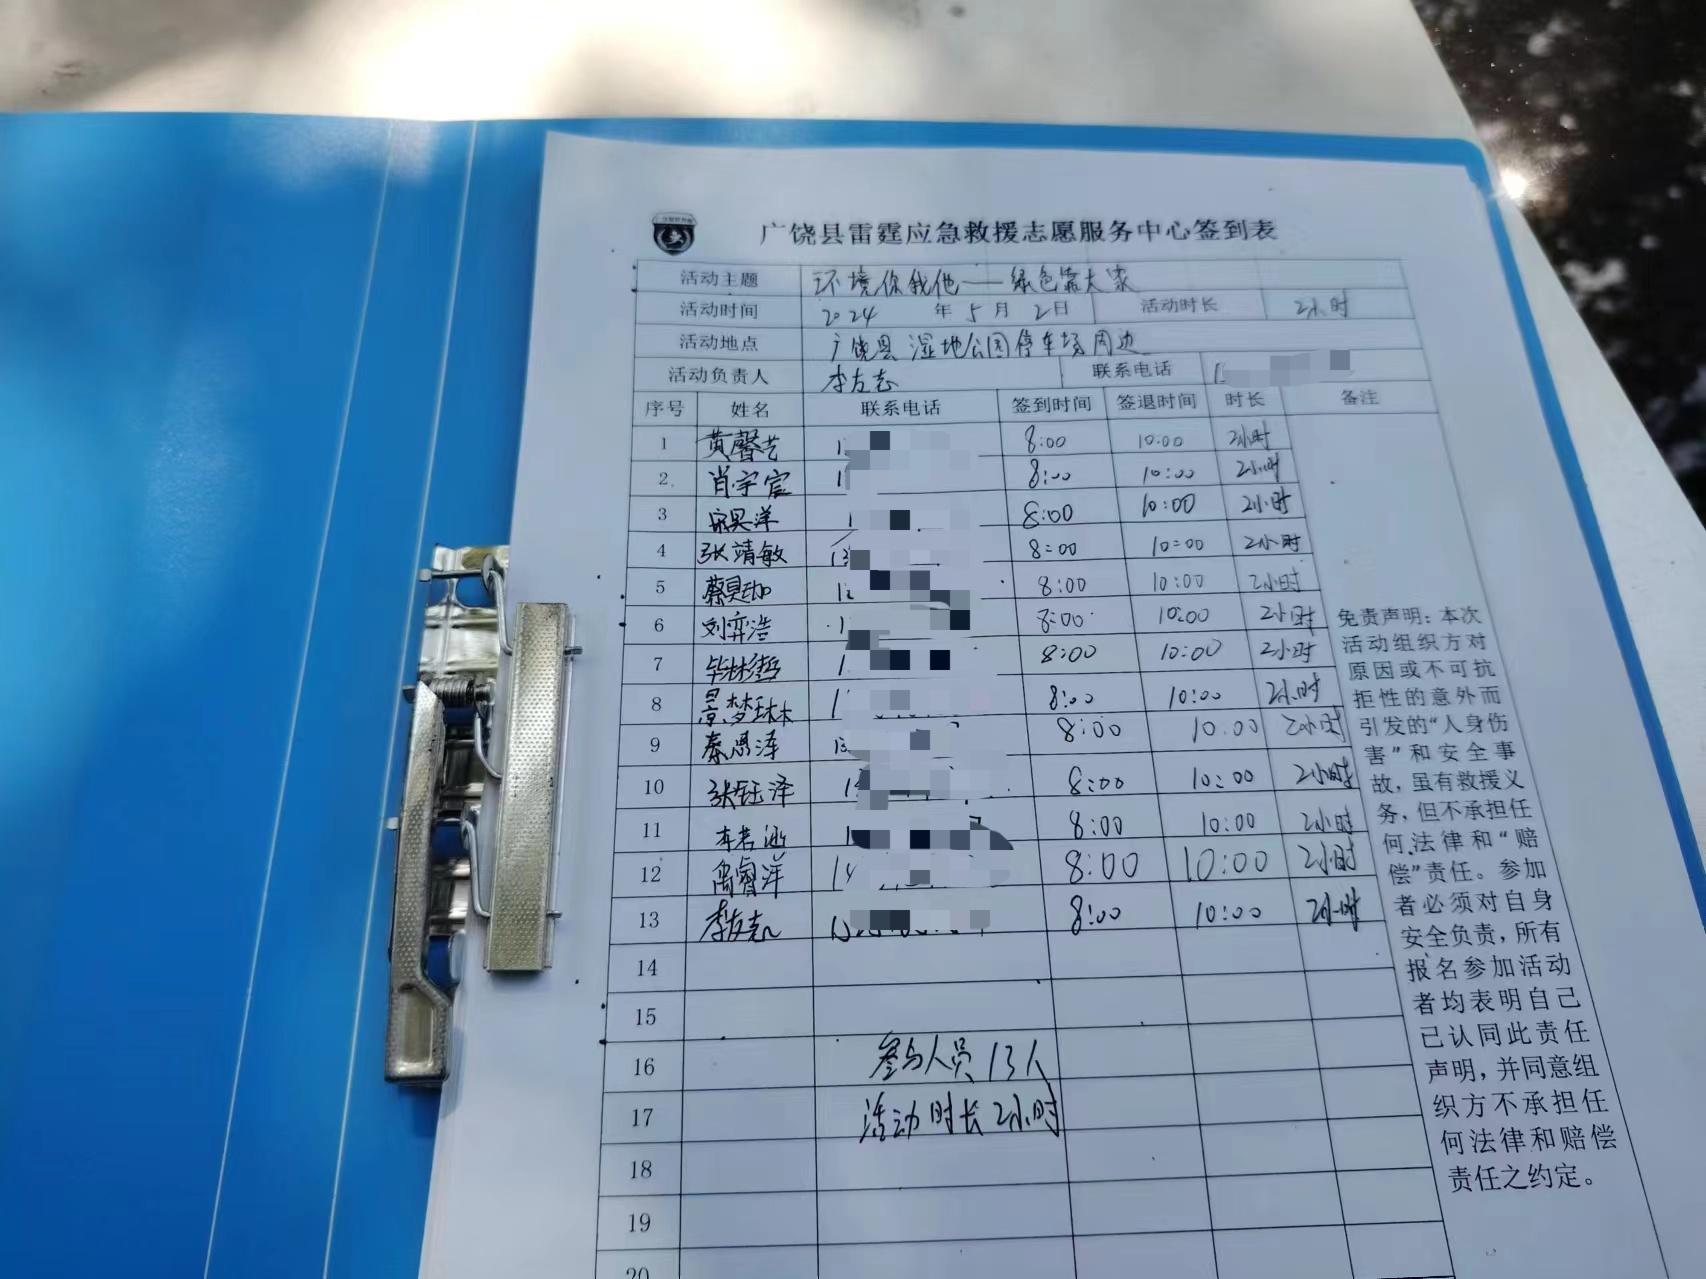 广饶县雷霆应急救援志愿服务中心签到表
活动主题 环境你我他——绿色靠大家
活动时间 2024 年 5 月 2 日 活动时长 2小时
活动地点 广饶县湿地公园停车场周边
活动负责人 李友志 联系电话 1
序号 姓名 联系电话 签到时间 签退时间 时长 备注
1 黄馨艺 1 8:00 10:00 2小时
2 肖宇宸 1 8:00 10:00 2小时
3 1 8:00 10:00 2小时
4 张靖敏 13 8:00 10:00 2小时
5 1 8:00 10:00 2小时
6 刘弈浩 1 8:00 10:00 2小时
7 1 8:00 10:00 2小时
8 景梦琳 1 8:00 10:00 2小时
9 秦恩泽 13 8:00 10:00 2小时
10 张钰泽 1 8:00 10:00 2小时
11 1 8:00 10:00 2小时
12 禹睿洋 8:00 10:00 2小时
13 李友志 8:00 10:00 2小时
14
15
16 参与人员13人
17 活动时长2小时
18
19
20
免责声明：本次
活动组织方对
原因或不可抗
拒性的意外而
引发的“人身伤
害”和安全事
故，虽有救援义
务，但不承担任
何法律和“赔
偿”责任。参加
者必须对自身
安全负责，所有
报名参加活动
者均表明自己
已认同此责任
声明，并同意组
织方不承担任
何法律和赔偿
责任之约定。